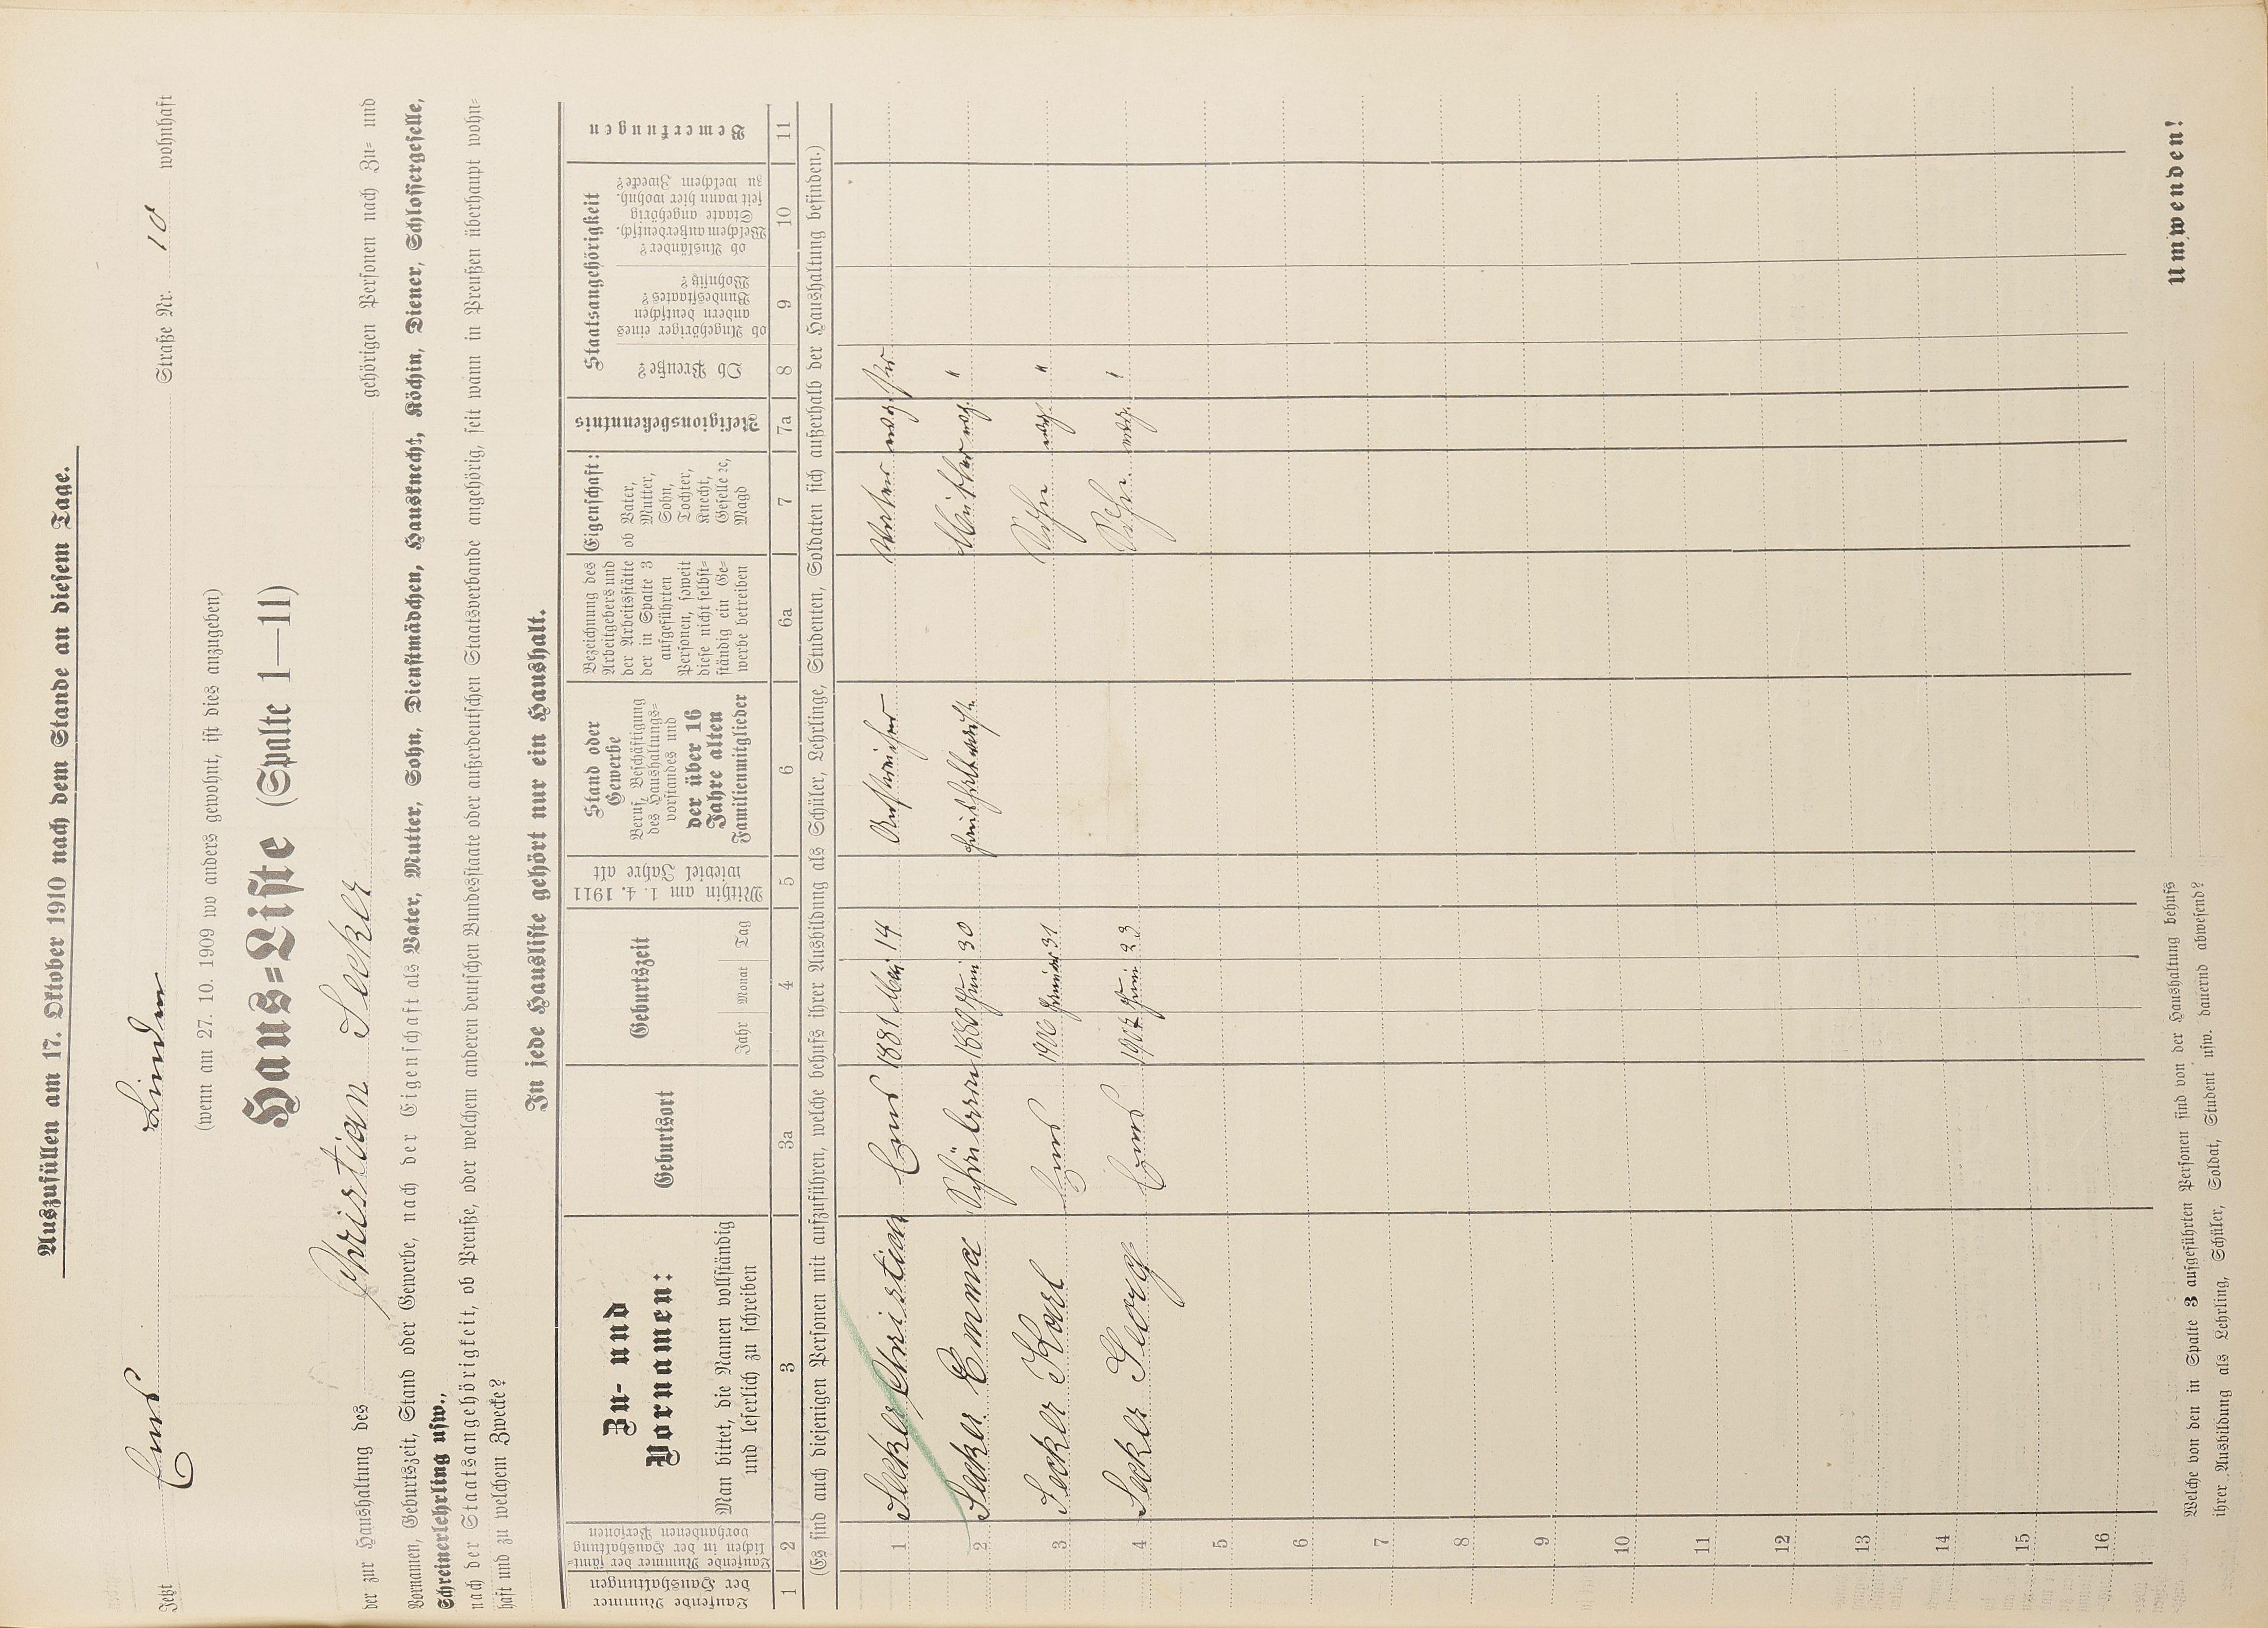 Auszufüllen am 17. Oktober 1910 nach dem Stande an diesem Tage.
Jetzt Ems Linden Straße Nr. 10 wohnhaft
(wenn am 27. 10. 1909 wo anders gewohnt, ist dies anzugeben)
Haus=Liste (Spalte 1—11)
der zur Haushaltung des Christian Secker gehörigen Personen nach Zu= und
Vornamen, Geburtszeit, Stand oder Gewerbe, nach der Eigenschaft als Vater, Mutter, Sohn, Dienstmädchen, Hausknecht, Köchin, Diener, Schlossergeselle,
Schreinerlehrling usw.,
nach der Staatsangehörigkeit, ob Preuße, oder welchem anderen deutschen Bundesstaate oder außerdeutschen Staatsverbande angehörig, seit wann in Preußen überhaupt wohn=
haft und zu welchem Zwecke?
In jede Hausliste gehört nur ein Haushalt.
Laufende Nummer
der Haushaltungen
Laufende Nummer der sämt=
lichen in der Haushaltung
vorhandenen Personen
Zu- und
Vornamen:
Man bittet, die Namen vollständig
und leserlich zu schreiben
Geburtsort
Geburtszeit
Jahr Monat Tag
Mithin am 1. 4. 1911
wieviel Jahre alt
Stand oder
Gewerbe
Beruf, Beschäftigung
des Haushaltungs=
vorstandes und
der über 16
Jahre alten
Familienmitglieder
Bezeichnung des
Arbeitgebers und
der Arbeitsstätte
der in Spalte 3
aufgeführten
Personen, soweit
diese nicht selbst=
ständig ein Ge=
werbe betreiben
Eigenschaft:
ob Vater,
Mutter,
Sohn,
Tochter,
Knecht,
Geselle ꝛc,
Magd
Religionsbekenntnis
Staatsangehörigkeit
Ob Preuße?
ob Angehöriger eines
andern deutschen
Bundesstaates?
Wohnsitz?
ob Ausländer?
Welchem außerdeutsch.
Staate angehörig
seit wann hier wohnh.
zu welchem Zwecke?
Bemerkungen
1 2 3 3a 4 5 6 6a 7 7a 8 9 10 11
(Es sind auch diejenigen Personen mit aufzuführen, welche behufs ihrer Ausbildung als Schüler, Lehrlinge, Studenten, Soldaten sich außerhalb der Haushaltung befinden.)
1 Secker Christian Ems 1881 Mai 14 Anstreicher Vater evg.
2 Secker Emma 1880 Juni 30 Mutter evg. "
3 Secker Karl Ems 1906 Januar 31 Sohn evg. "
4 Secker Georg Ems 1907 Juni 23 Sohn evg. "
5
6
7
8
9
10
11
12
13
14
15
16
Welche von den in Spalte 3 aufgeführten Personen sind von der Haushaltung behufs
ihrer Ausbildung als Lehrling, Schüler, Soldat, Student usw. dauernd abwesend?
Umwenden!